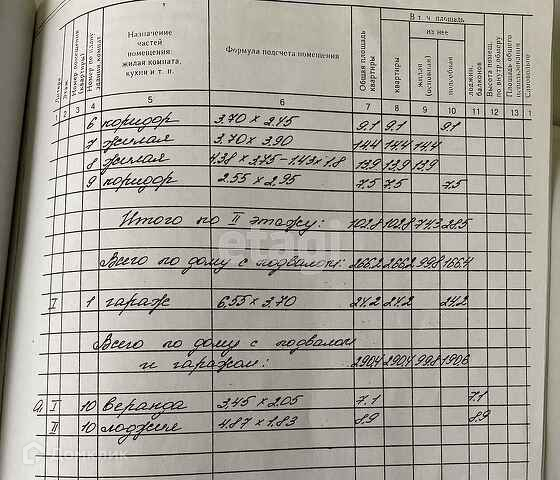 В т. ч. площадь
из нее
Литера
Этаж
Номер помещения (квартиры)
Номер по плану здания, комнат
Назначение частей помещения: жилая комната, кухни и т. п.
Формула подсчета помещения
Общая площадь квартиры
квартиры
жилая (основная)
подсобная
лоджии, балконов
Высота помещ. по внутр. обмеру
Площадь общего использования
Самовольно
1 2 3 4 5 6 7 8 9 10 11 12 13 1
6 коридор 3.70 × 2.45 9.1 9.1 9.1
7 жилая 3.70 × 3.90 14.4 14.4 14.4
8 жилая 4.38 × 3.75 - 1.43 × 1.8 13.9 13.9 13.9
9 коридор 2.55 × 2.95 7.5 7.5 7.5
Итого по II этажу: 102.8 102.8 74.3 28.5
etagi
Всего по дому с подвалом: 266.2 266.2 99.8 166.4
I 1 гараж 6.55 × 3.70 24.2 24.2 24.2
Всего по дому с подвалом
и гаражом: 290.4 290.4 99.8 190.6
а I 10 веранда 3.45 × 2.05 7.1 7.1
II 10 лоджия 4.87 × 1.83 8.9 8.9
Домклик